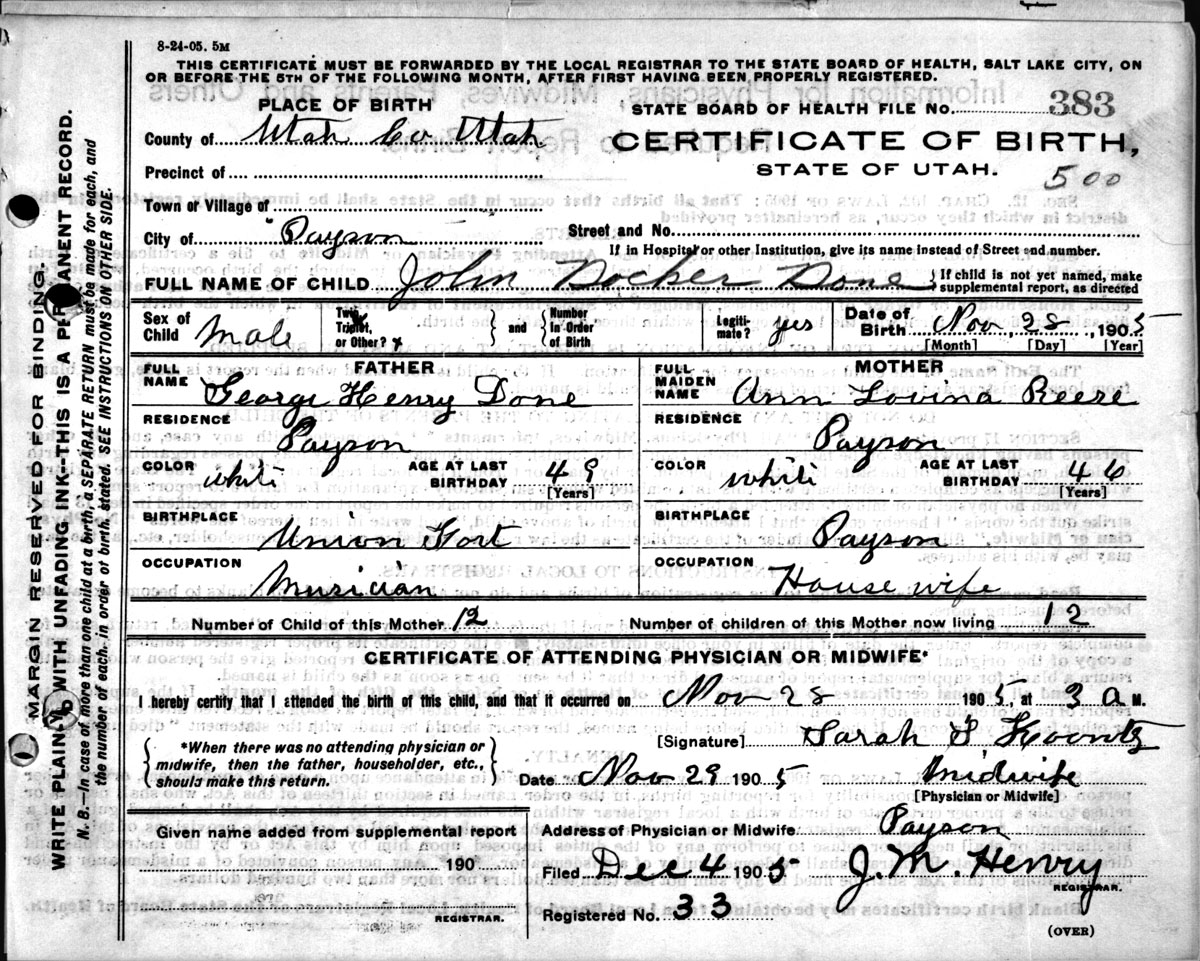 8-24-05. 5M
THIS CERTIFICATE MUST BE FORWARDED BY THE LOCAL REGISTRAR TO THE STATE BOARD OF HEALTH, SALT LAKE CITY, ON
OR BEFORE THE 5TH OF THE FOLLOWING MONTH, AFTER FIRST HAVING BEEN PROPERLY REGISTERED.
MARGIN RESERVED FOR BINDING.
WRITE PLAINLY WITH UNFADING INK--THIS IS A PERMANENT RECORD.
N. B.--In case of more than one child at a birth, a SEPARATE RETURN must be made for each, and
the number of each, in order of birth, stated. SEE INSTRUCTIONS ON OTHER SIDE.
PLACE OF BIRTH
STATE BOARD OF HEALTH FILE NO. 383
County of Utah Co Utah
CERTIFICATE OF BIRTH,
STATE OF UTAH.
500
Precinct of
Town or Village of
City of Payson
Street and No.
If in Hospital or other Institution, give its name instead of Street and number.
FULL NAME OF CHILD John Docher Done
If child is not yet named, make
supplemental report, as directed
Sex of Child Male
Twin, Triplet, or Other?
and
Number In Order of Birth
Legitimate? yes
Date of Birth Nov 28, 1905
[Month] [Day] [Year]
FATHER
FULL NAME George Henry Done
RESIDENCE Payson
COLOR white
AGE AT LAST BIRTHDAY 49
[Years]
BIRTHPLACE Union Fort
OCCUPATION Musician
MOTHER
FULL MAIDEN NAME Ann Lovina Reese
RESIDENCE Payson
COLOR white
AGE AT LAST BIRTHDAY 46
[Years]
BIRTHPLACE Payson
OCCUPATION House wife
Number of Child of this Mother 12
Number of children of this Mother now living 12
CERTIFICATE OF ATTENDING PHYSICIAN OR MIDWIFE*
I hereby certify that I attended the birth of this child, and that it occurred on Nov 28 1905, at 3 a M.
*When there was no attending physician or
midwife, then the father, householder, etc.,
should make this return.
[Signature] Sarah S. Koontz
Date Nov 29 1905
Midwife
[Physician or Midwife]
Given name added from supplemental report
190
REGISTRAR.
Address of Physician or Midwife Payson
Filed Dec 4 1905
J. M. Henry
REGISTRAR.
Registered No. 33
(OVER)